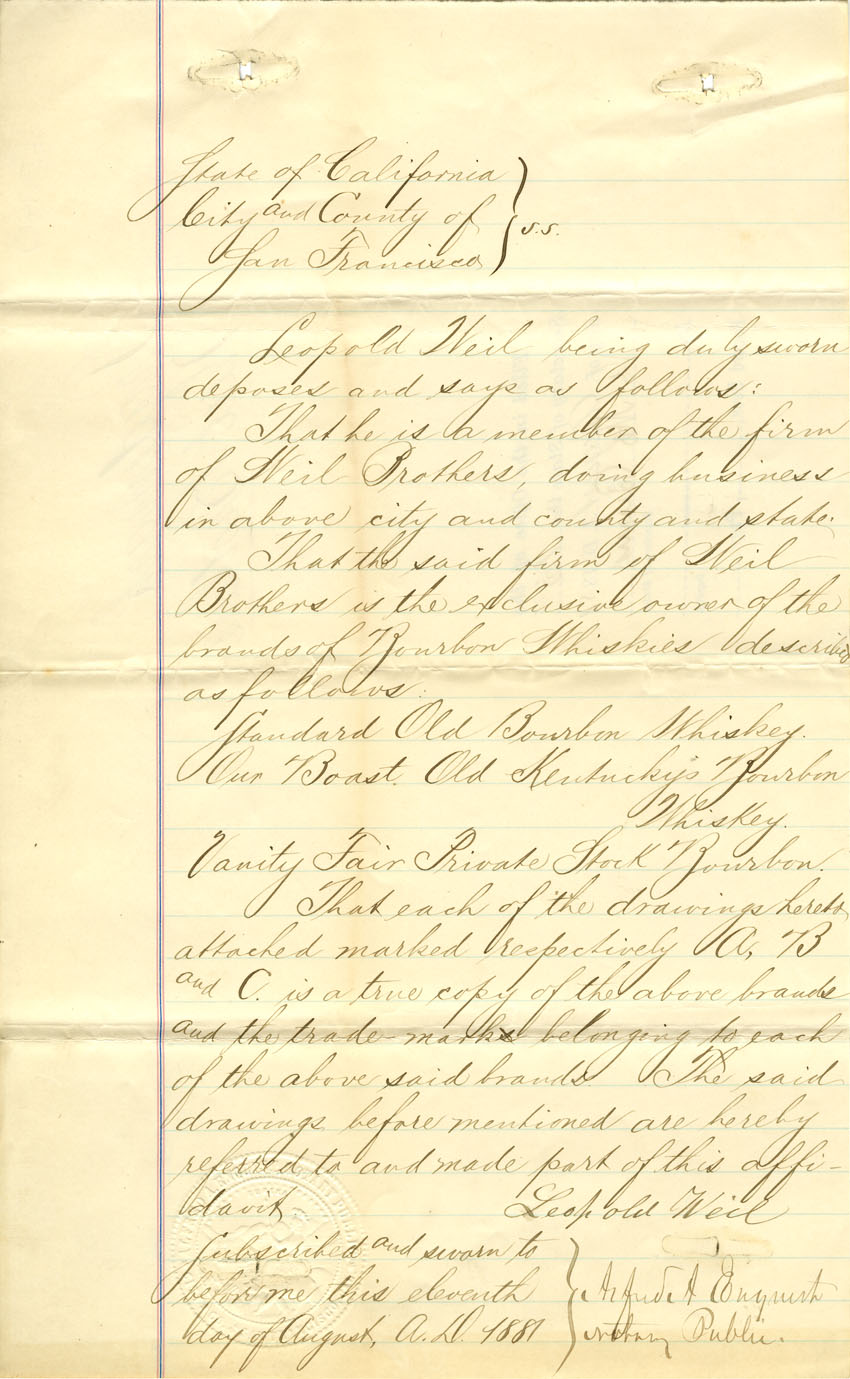 State of California
City and County of
San Francisco
s.s.
Leopold Weil being duly sworn
deposes and says as follows:
That he is a member of the firm
of Weil Brothers, doing business
in above city and county and state.
That the said firm of Weil
Brothers is the exclusive owner of the
brands of Bourbon Whiskies described
as follows:
Standard Old Bourbon Whiskey.
Our Boast. Old Kentucky's Bourbon
Whiskey.
Vanity Fair Private Stock Bourbon.
That each of the drawings hereto
attached marked respectively A, B
and C. is a true copy of the above brands
and the trade-marks belonging to each
of the above said brands. The said
drawings before mentioned are hereby
referred to and made part of this affi-
davit
Leopold Weil
Subscribed and sworn to
before me this eleventh
day of August, A.D. 1881
Alfred A Enquist
Notary Public.